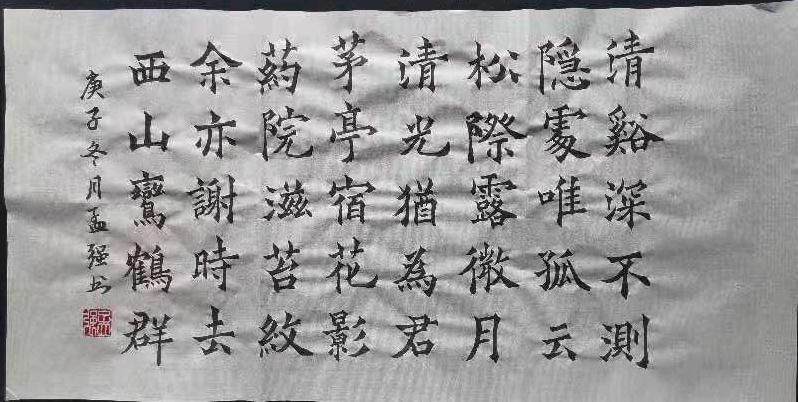 清谿深不測
隱處唯孤云
松際露微月
清光猶為君
茅亭宿花影
葯院滋苔紋
余亦謝時去
西山鸞鶴群
庚子冬月孟强书